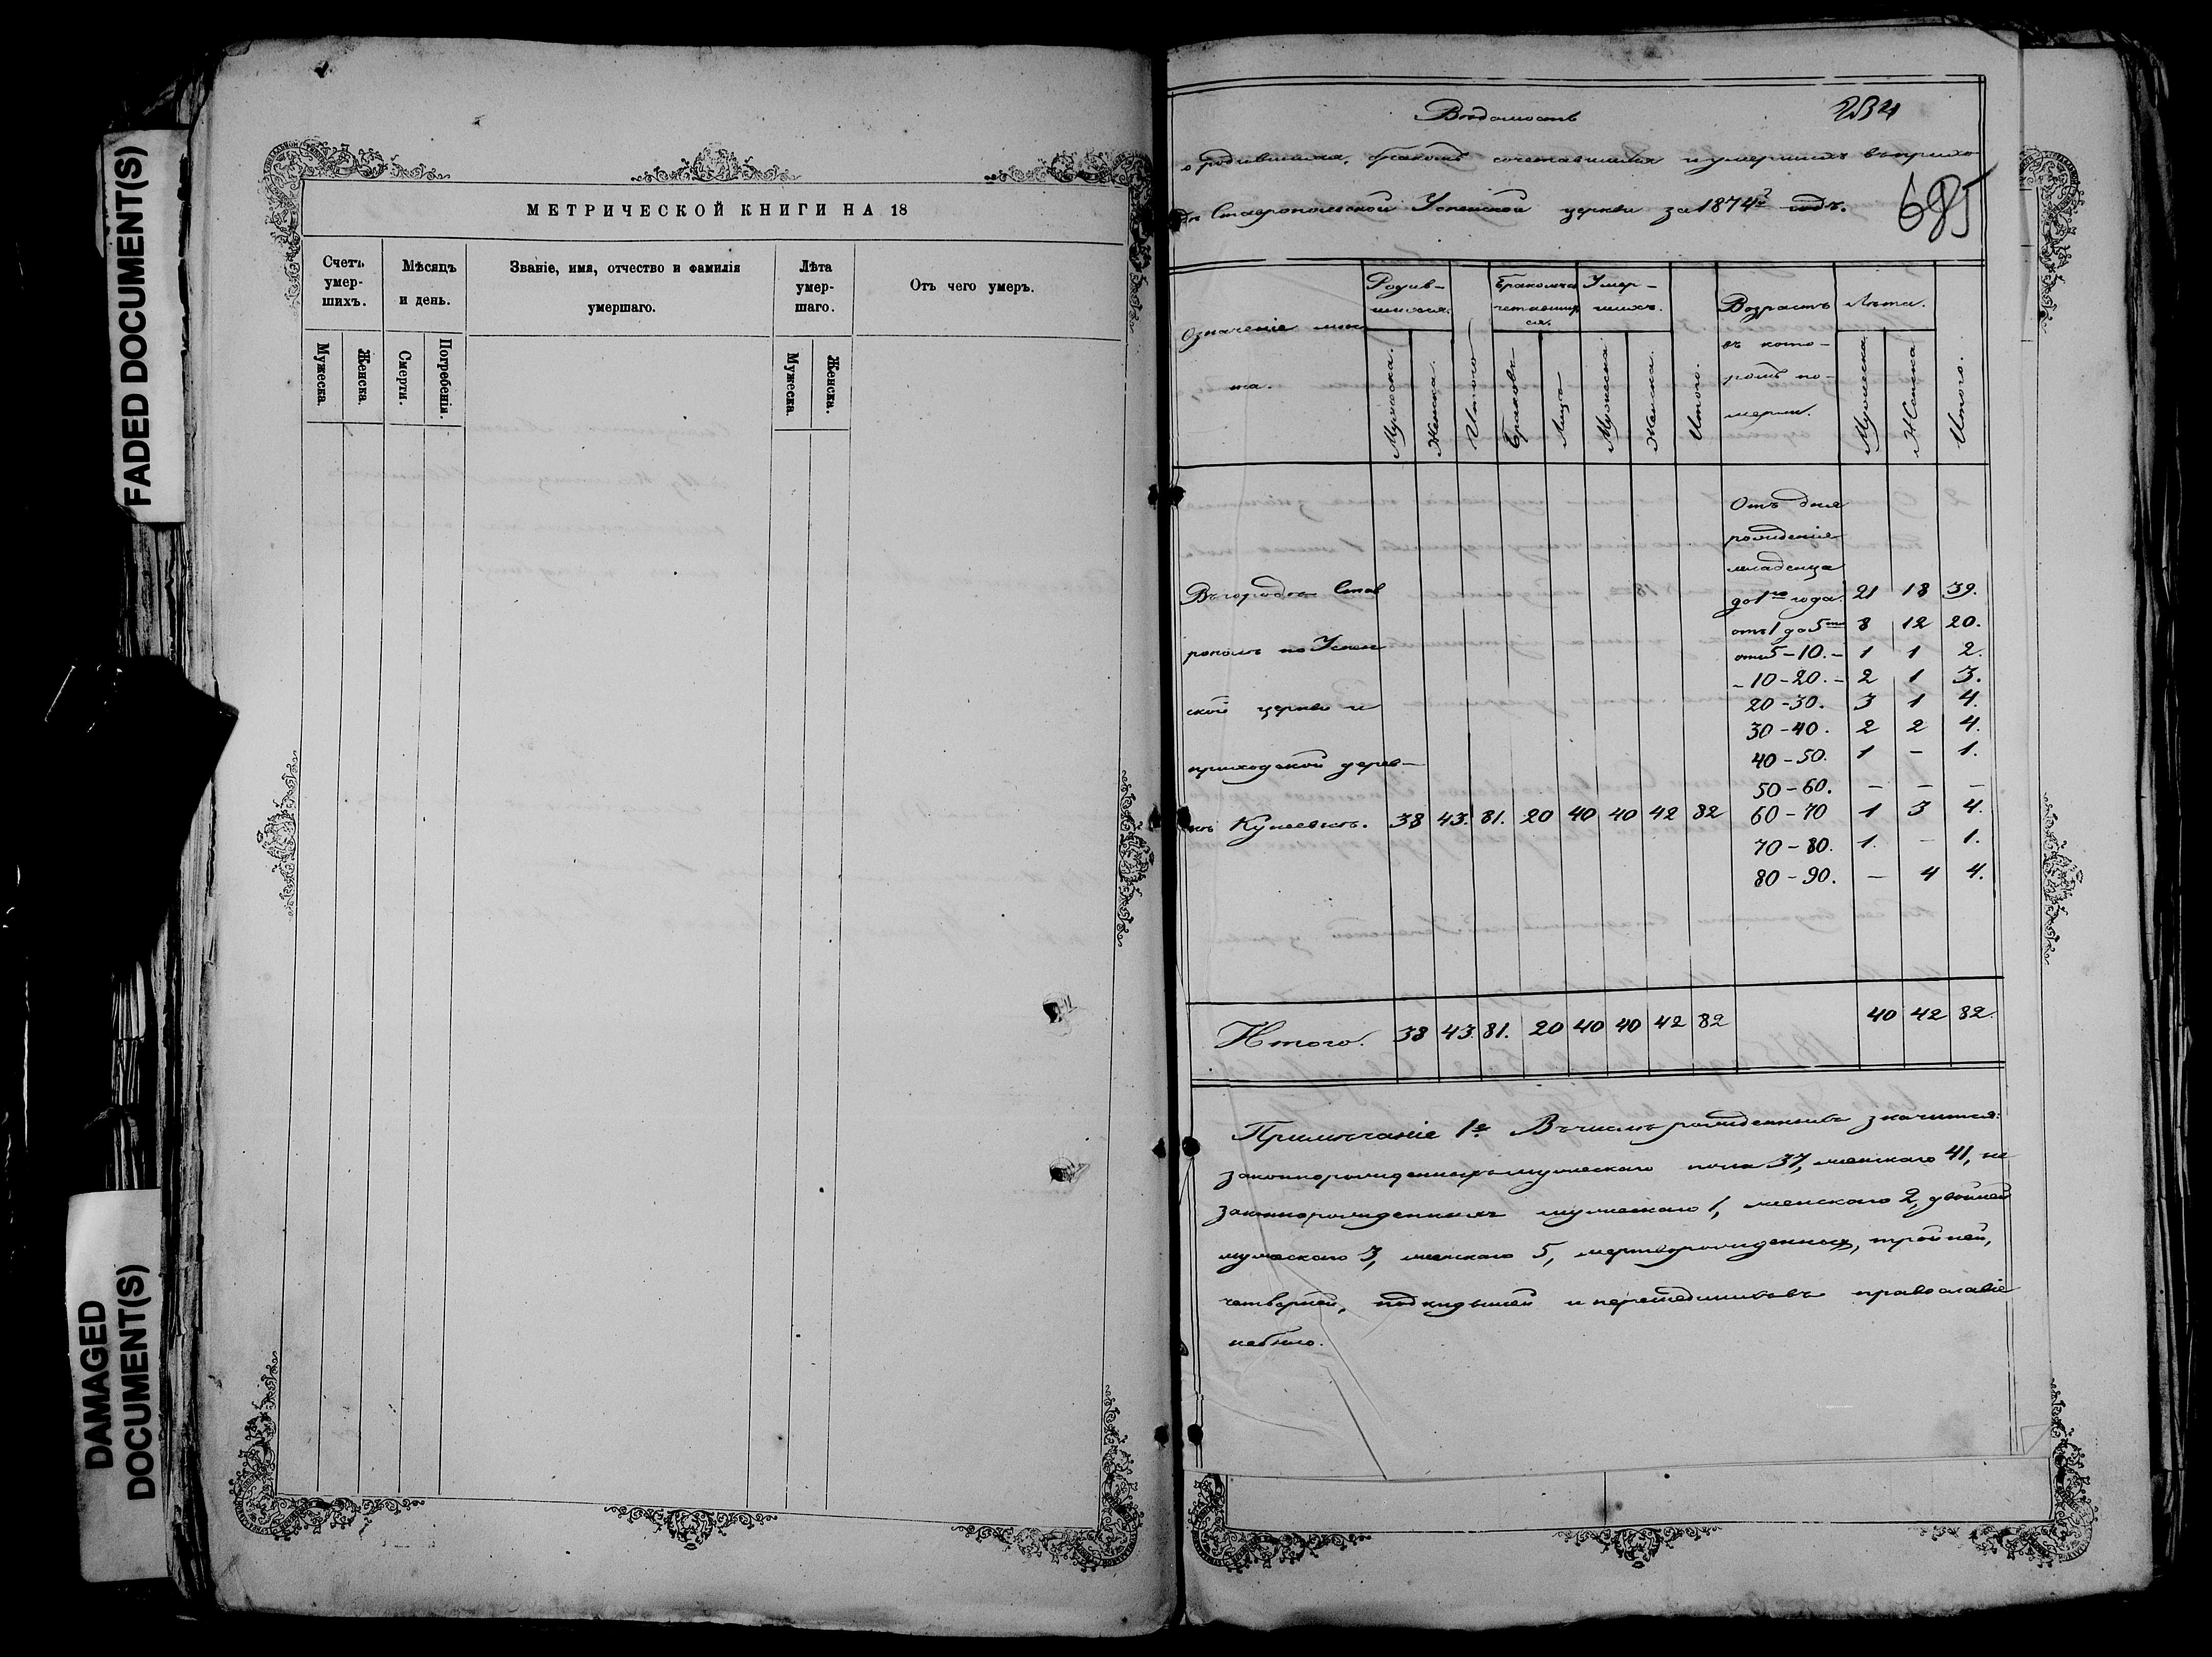 FADED DOCUMENT(S)
DAMAGED
DOCUMENT(S)
МЕТРИЧЕСКОЙ КНИГИ НА 18
Счетъ умер-шихъ.
Мужеска.
Женска.
Мѣсяцъ и день.
Смерти.
Погребенія.
Званіе, имя, отчество и фамилія
умершаго.
Лѣта умер-шаго.
Мужеска.
Женска.
Отъ чего умеръ.
Вѣдомость
234
о родившихся, бракомъ сочетавшихся и умершихъ въ прихо
дѣ Ставропольской Успенской церкви за 1874й годъ.
685
Означеніе мѣс
та.
Родив-
шихся.
Мужеска.
Женска.
Итого
Бракомъ со
четавших
ся.
Браковъ
Лицъ
Умер-
шихъ.
Мужеска
Женска.
Итого.
Возрастъ
въ кото-
ромъ по-
мерли.
Лѣта.
Мужеска
Женска
Итого.
Отъ дня
рожденія
младенца
до 1го года. 21 18 39.
отъ 1 до 5ти 8 12 20.
отъ 5-10.- 1 1 2.
-10-20.- 2 1 3.
20-30. 3 1 4.
30-40. 2 2 4.
40-50. 1 - 1.
50-60. - - -
60-70 1 3 4.
70-80. 1. - 1.
80-90. - 4 4.
Въ городѣ Став
рополѣ по Успен
ской церкви и
приходской дерев-
нѣ Кунеевкѣ. 38 43. 81. 20 40 40 42 82
Итого. 38 43. 81. 20 40 40 42 82 40 42 82.
Примѣчаніе 1е. Въ числѣ рожденныхъ значится:
законнорожденныхъ мужескаго пола 37, женскаго 41, не
законнорожденныхъ мужескаго 1, женскаго 2, двойней
мужескаго 3, женскаго 5, мертворожденныхъ, тройней,
четверней, подкидышей и перешедшихъ въ православіе
небыло.